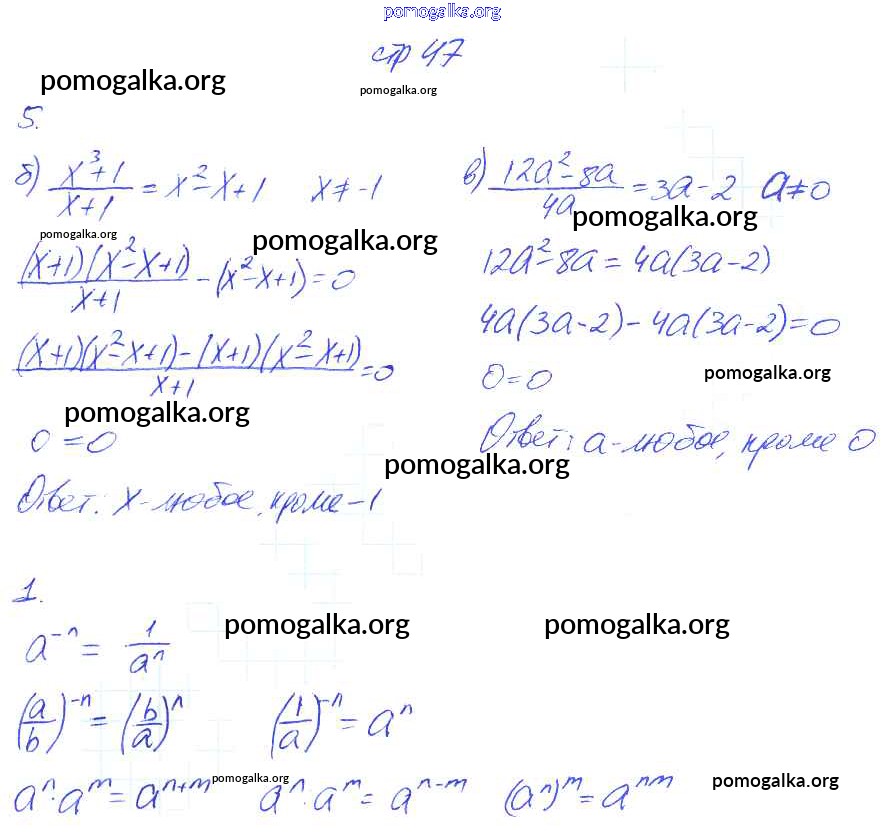 pomogalka.org
стр 47
pomogalka.org
pomogalka.org
5.
б) (x³+1)/(x+1) = x²-x+1 x≠-1
pomogalka.org
pomogalka.org
((x+1)(x²-x+1))/(x+1) - (x²-x+1)=0
((x+1)(x²-x+1)-(x+1)(x²-x+1))/(x+1)=0
pomogalka.org
0=0
Ответ: x-любое, кроме -1
в) (12a²-8a)/(4a) = 3a-2 a≠0
pomogalka.org
12a²-8a = 4a(3a-2)
4a(3a-2)-4a(3a-2)=0
0=0
pomogalka.org
Ответ: a-любое, кроме 0
pomogalka.org
1.
a⁻ⁿ = 1/aⁿ
pomogalka.org
pomogalka.org
(a/b)⁻ⁿ = (b/a)ⁿ (1/a)⁻ⁿ = aⁿ
aⁿ·aᵐ = aⁿ⁺ᵐ aⁿ·aᵐ = aⁿ⁻ᵐ (aⁿ)ᵐ = aⁿᵐ
pomogalka.org
pomogalka.org